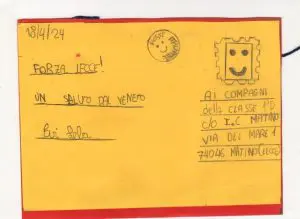 18/4/24
FORZA LECCE!
UN SALUTO DAL VENETO
AI COMPAGNI
della CLASSE 1°B
c/o I.C MATINO
VIA DEL MARE 1
74046 MATINO (LECCE)